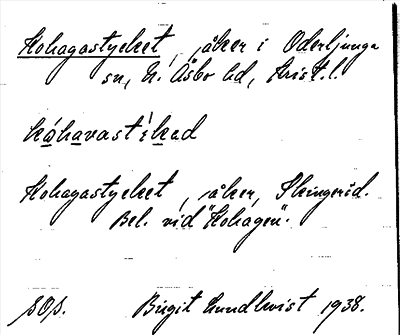 Kohagastycket, åker i Oderljunga
sn, N. Åsbo hd, Krist. l.
kåhavastikad
Kohagastycket, åker, Skingeröd.
Bel. vid "Kohagen".
SOS. Birgit Lundkvist 1938.